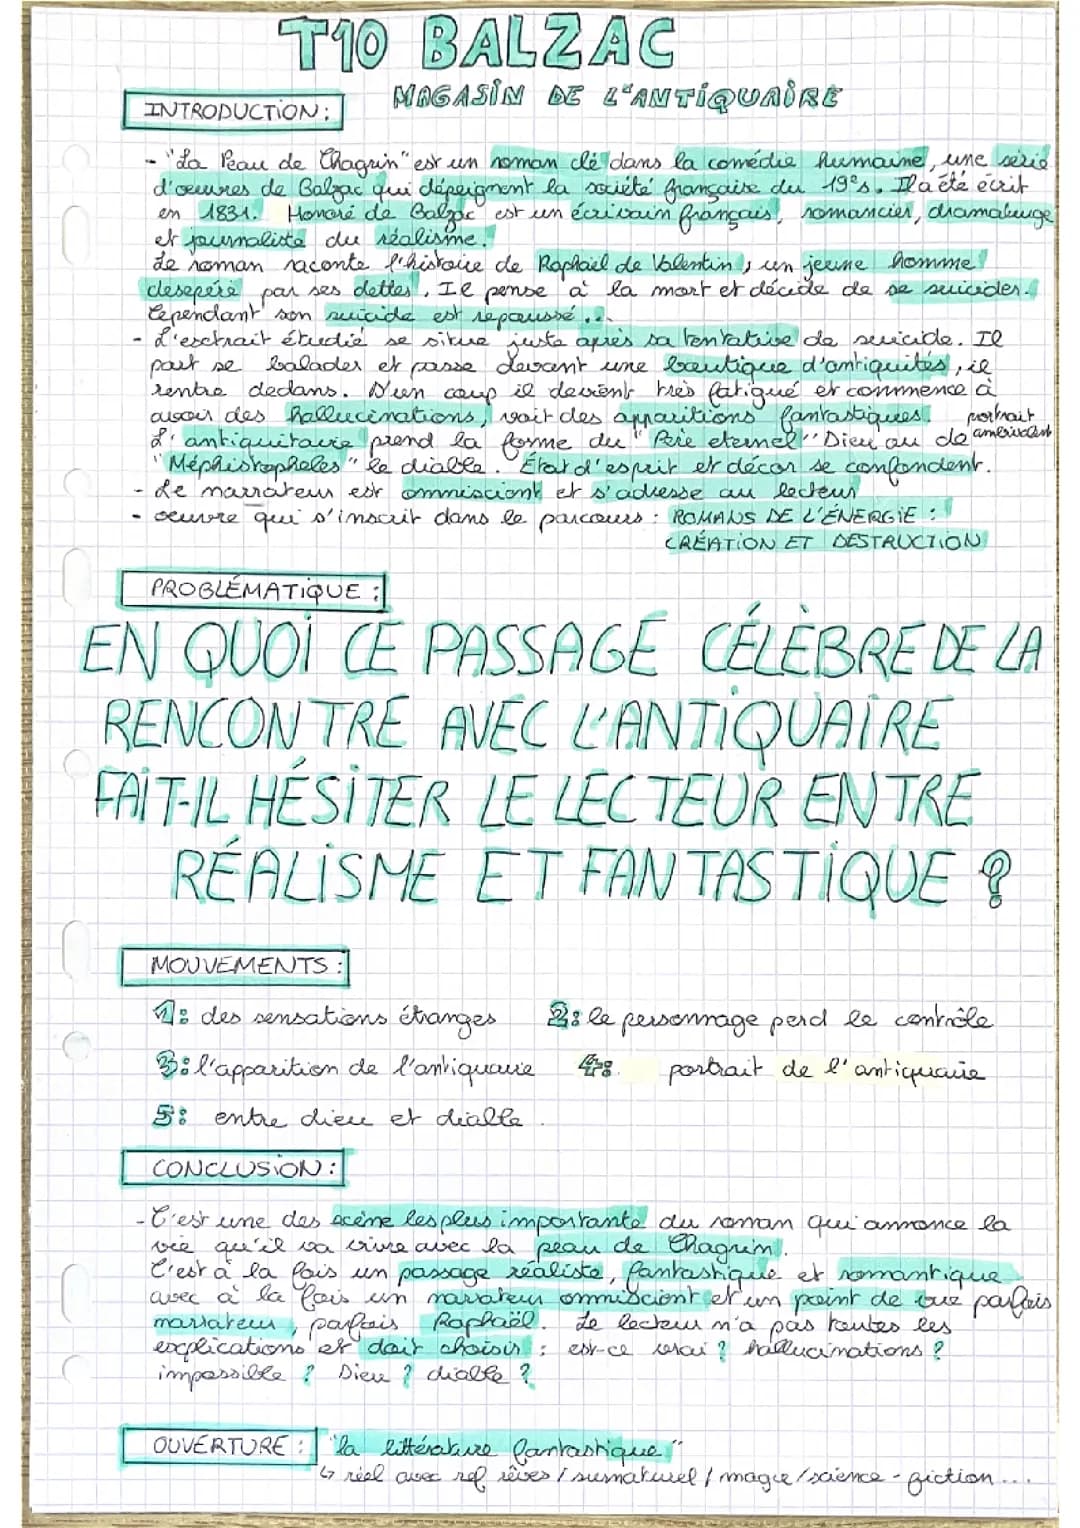 T10 BALZAC
MAGASIN DE L'ANTIQUAIRE
INTRODUCTION :
- "La Peau de Chagrin" est un roman clé dans la comédie humaine, une série
d'œuvres de Balzac qui dépeignent la société française du 19es. Il a été écrit
en 1831. Honoré de Balzac est un écrivain français, romancier, dramaturge
et journaliste du réalisme.
Le roman raconte l'histoire de Raphaël de Valentin, un jeune homme
desepéré par ses dettes. Il pense à la mort et décide de se suicider.
Cependant son suicide est repoussé...
- L'extrait étudié se situe juste après sa tentative de suicide. Il
part se balader et passe devant une boutique d'antiquités, il
rentre dedans. D'un coup il devient très fatigué et commence à
avoir des hallucinations, voit des apparitions fantastiques.
L'antiquitaire prend la forme du "Père eternel" Dieu ou de portrait ambivalent
"Méphistopheles" le diable. État d'esprit et décor se confondent.
- Le narrateur est ommiscient et s'adresse au lecteur
- œuvre qui s'inscrit dans le parcours : ROMANS DE L'ÉNERGIE :
CRÉATION ET DESTRUCTION
PROBLÉMATIQUE :
EN QUOI CE PASSAGE CÉLÈBRE DE LA
RENCONTRE AVEC L'ANTIQUAIRE
FAIT-IL HÉSITER LE LECTEUR ENTRE
RÉALISME ET FANTASTIQUE ?
MOUVEMENTS :
1: des sensations étranges 2: le personnage perd le contrôle
3: l'apparition de l'antiquaire 4: portrait de l'antiquaire
5: entre dieu et diable.
CONCLUSION :
- C'est une des scène les plus importante du roman qui annonce la
vie qu'il va vivre avec la peau de Chagrin.
C'est à la fois un passage réaliste, fantastique et romantique
avec à la fois un narrateur ommiscient et un point de vue parfois
narrateur, parfois Raphaël. Le lecteur n'a pas toutes les
explications et doit choisir : est-ce vrai ? hallucinations ?
impossible ? Dieu ? diable ?
OUVERTURE : "la littérature fantastique"
↳ réel avec ref rêves / surnaturel / magie / science-fiction...